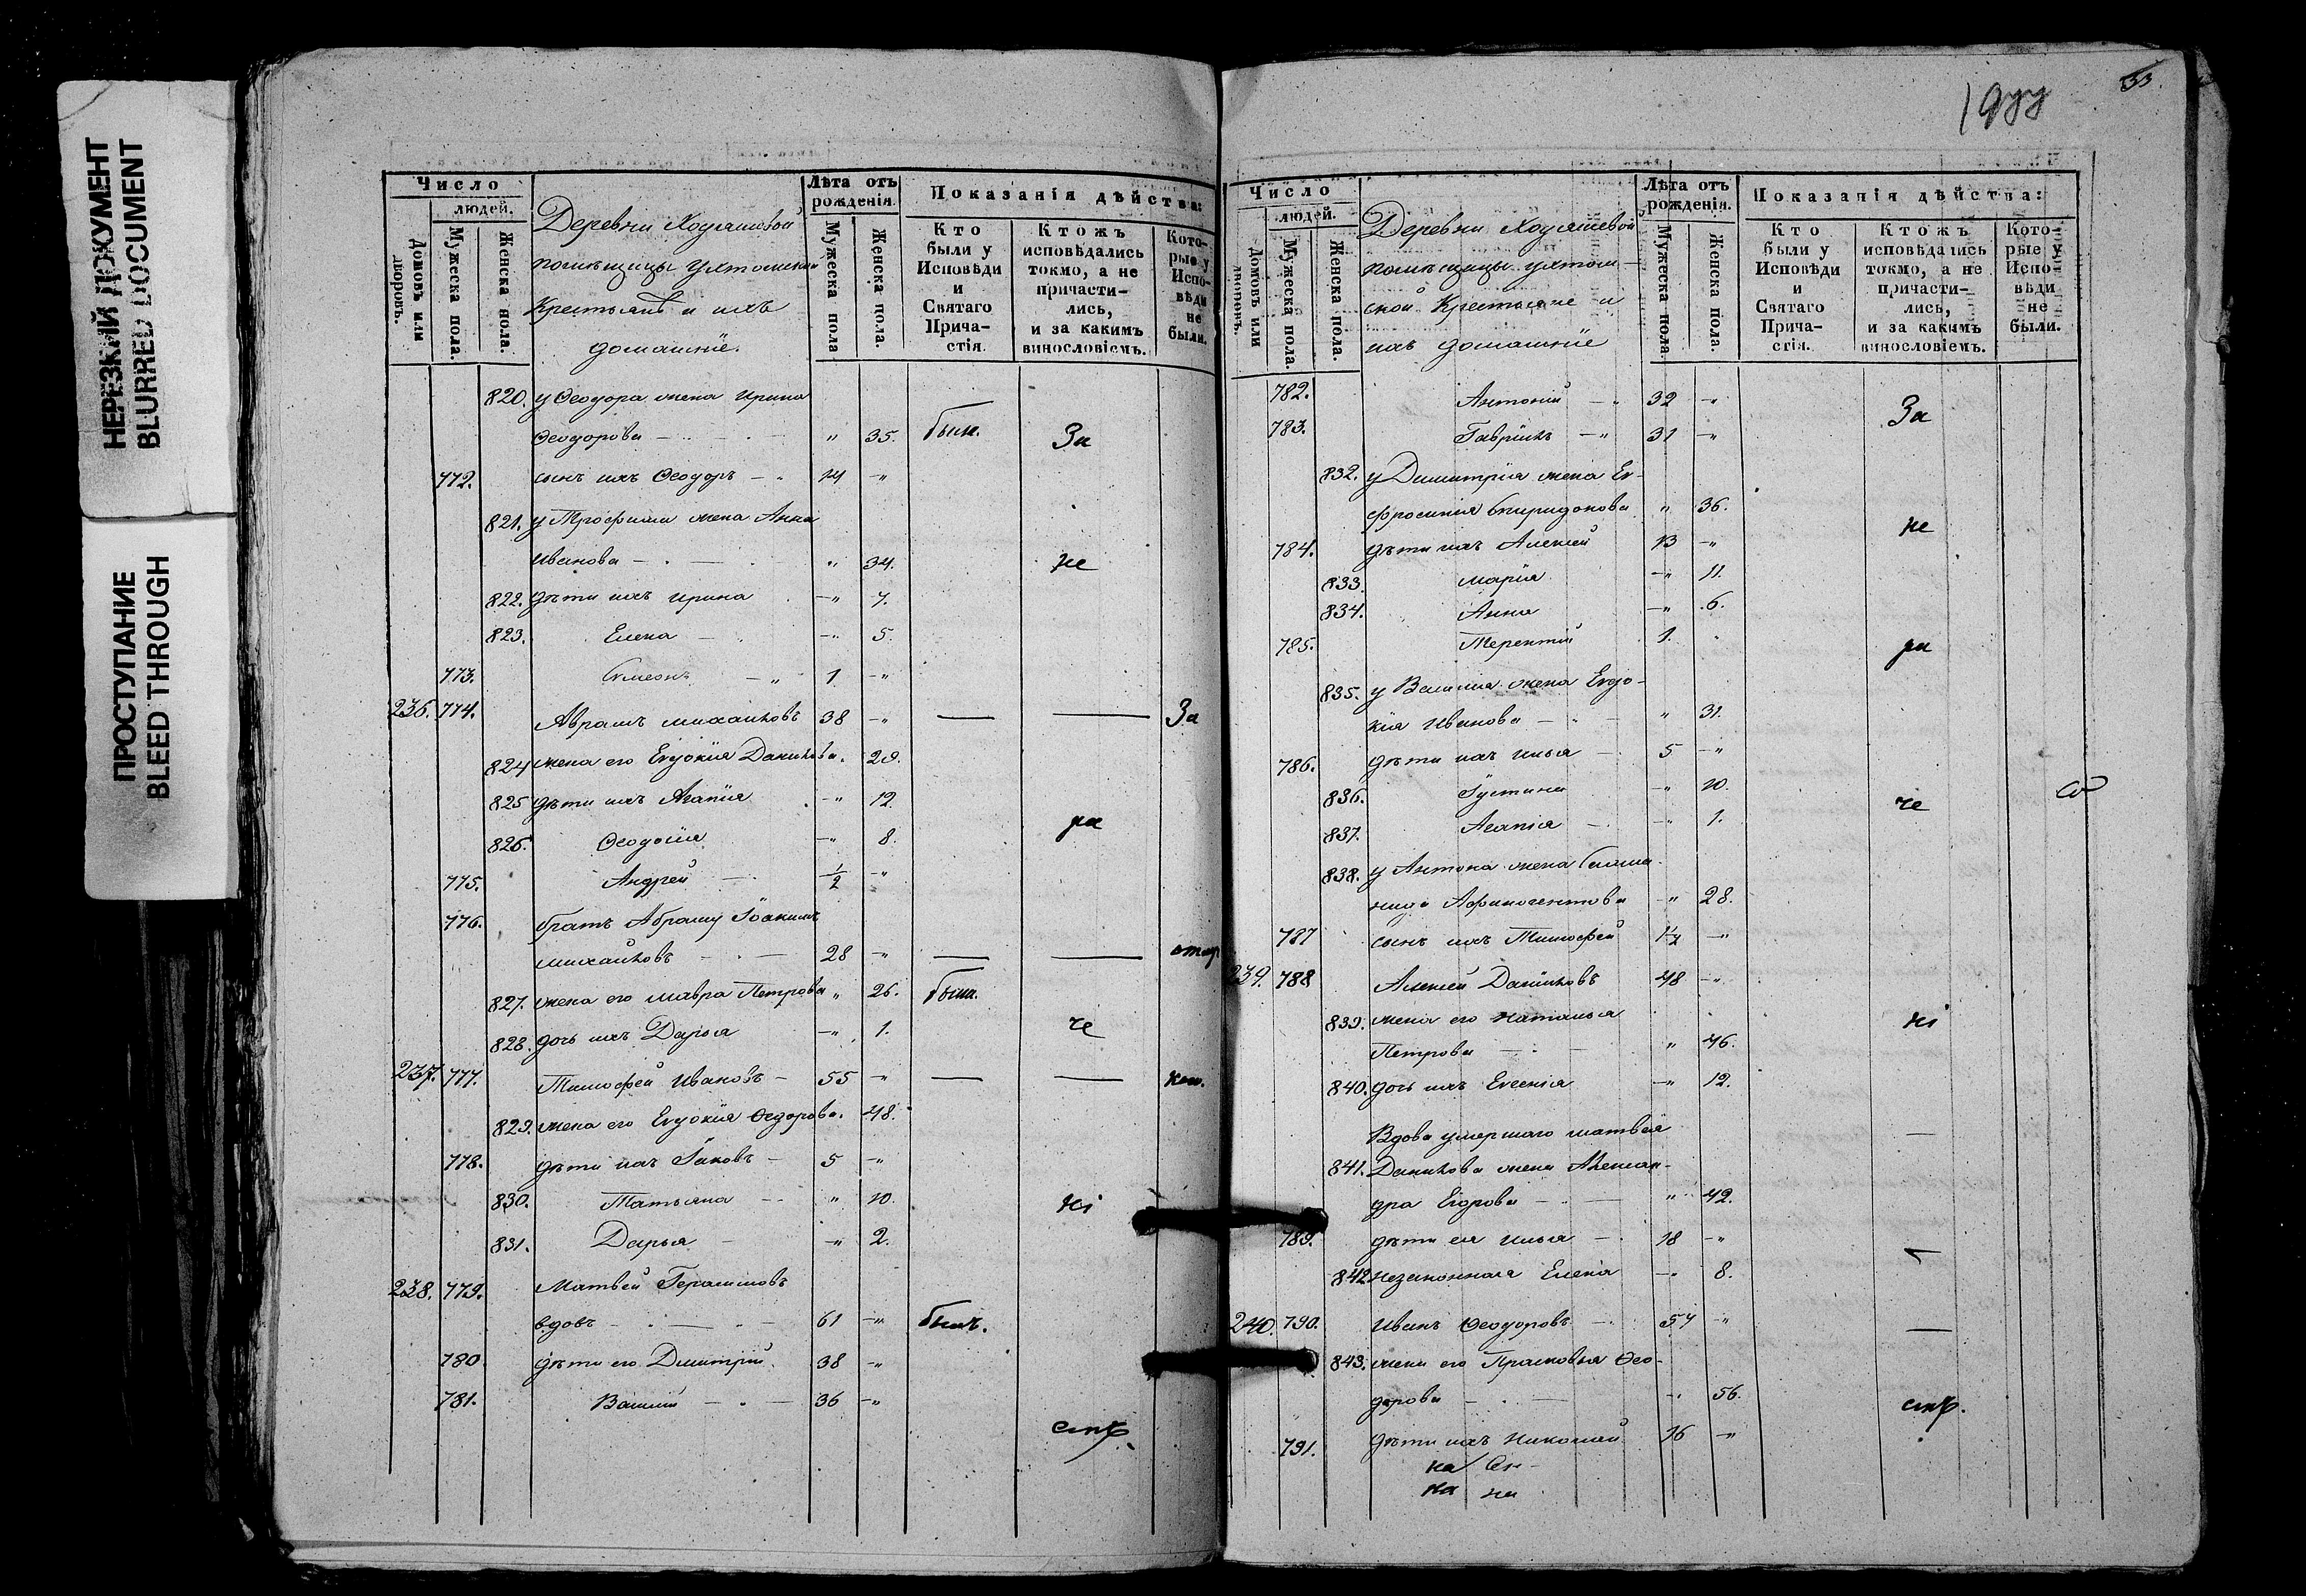 НЕРЕЗКИЙ ДОКУМЕНТ
BLURRED DOCUMENT
ПРОСТУПАНИЕ
BLEED THROUGH
Число
людей.
Домовъ или дворовъ.
Мужеска пола.
Женска пола.
Деревни Ходяшевой
помѣщицы Ухтомской
Крестьянѣ и ихъ
домашнiе.
Лѣта отъ рожденiя.
Мужеска пола
Женска пола.
Показанiя дѣйства:
Кто были у Исповѣди и Святаго Прича-стiя.
Ктожъ исповѣдались токмо, а не причасти-лись, и за какимъ винословiемъ.
Кото-рые у Испо-вѣди не были.
820. у Ѳеодора жена Ирина
Ѳеодорова — " 35. был. За
772. сынъ ихъ Ѳеодоръ — 14 "
821. у Трофима жена Анна
Иванова — " 34. не
822. дѣти ихъ Ирина — " 7.
823. Елена — " 5.
773. Симеонъ — 1 "
236. 774. Абрамъ Михайловъ 38 — " — — За
824 жена его Евдокiя Данилова. 29.
825 дѣти ихъ Агапiя — " 12. ра
826. Ѳеодосiя — " 8.
775. Андрей — 1/2 "
776. братъ Абраму Iоакимъ
Михайловъ — 28 — " — — отлу
827. жена его Мавра Петрова " 26. была.
828. дочь ихъ Дарья — " 1. че
237. 777. Тимофей Ивановъ — 55 — " — —
829. жена его Евдокiя Ѳедорова. 48.
778. дѣти ихъ Iаковъ — 5 — "
830. Татьяна — " 10. нi
831. Дарья — " 2.
238. 779. Матвей Герасимовъ
вдовъ — 61 — " былъ.
780 дѣти его Димитрiй 38 — "
781. Василiй — 36 — "
33.
1977
Число
людей.
Домовъ или дворовъ.
Мужеска пола.
Женска пола.
Деревни Ходяшевой
помѣщицы Ухтом-
ской Крестьяне и
ихъ домашнiе
Лѣта отъ рожденiя.
Мужеска пола.
Женска пола.
Показанiя дѣйства:
Кто были у Исповѣди и Святаго Прича-стiя.
Ктожъ исповѣдались токмо, а не причасти-лись, и за какимъ винословiемъ.
Кото-рые у Испо-вѣди не были.
782. Антонiй — 32 — " За
783. Гаврiилъ — " 31 — "
832. у Димитрiя жена Ев-
фросинiя Спиридонова " 36.
784. дѣти ихъ Алексей 13 — " не
833. Марiя — " 11.
834. Анна — " 6.
785. Терентiй 1. ра
835. у Василiя жена Евдо-
кiя Иванова — " 31.
786. дѣти ихъ Илья — 5 — "
836. Iустина — " 10. че
837. Агапiя — " 1.
838. у Антона жена Соломо
нида Афиногентова — " 28.
787 сынъ ихъ Тимофей 1/2 — "
239. 788 Алексей Данiиловъ 48 — "
839. жена его Наталья нi
Петрова — " 46.
840. дочь ихъ Евгенiя — " 12.
Вдова умершаго Матвея
841. Данилова жена Алексан-
дра Егорова — " 42.
789. дѣти ея Илья — 18 — "
842 незаконная Елена — " 8.
240. 790. Иванъ Ѳеодоровъ — 54 — "
843. жена его Прасковья Ѳео-
дорова — 56.
791. дѣти ихъ Николай 16 — "